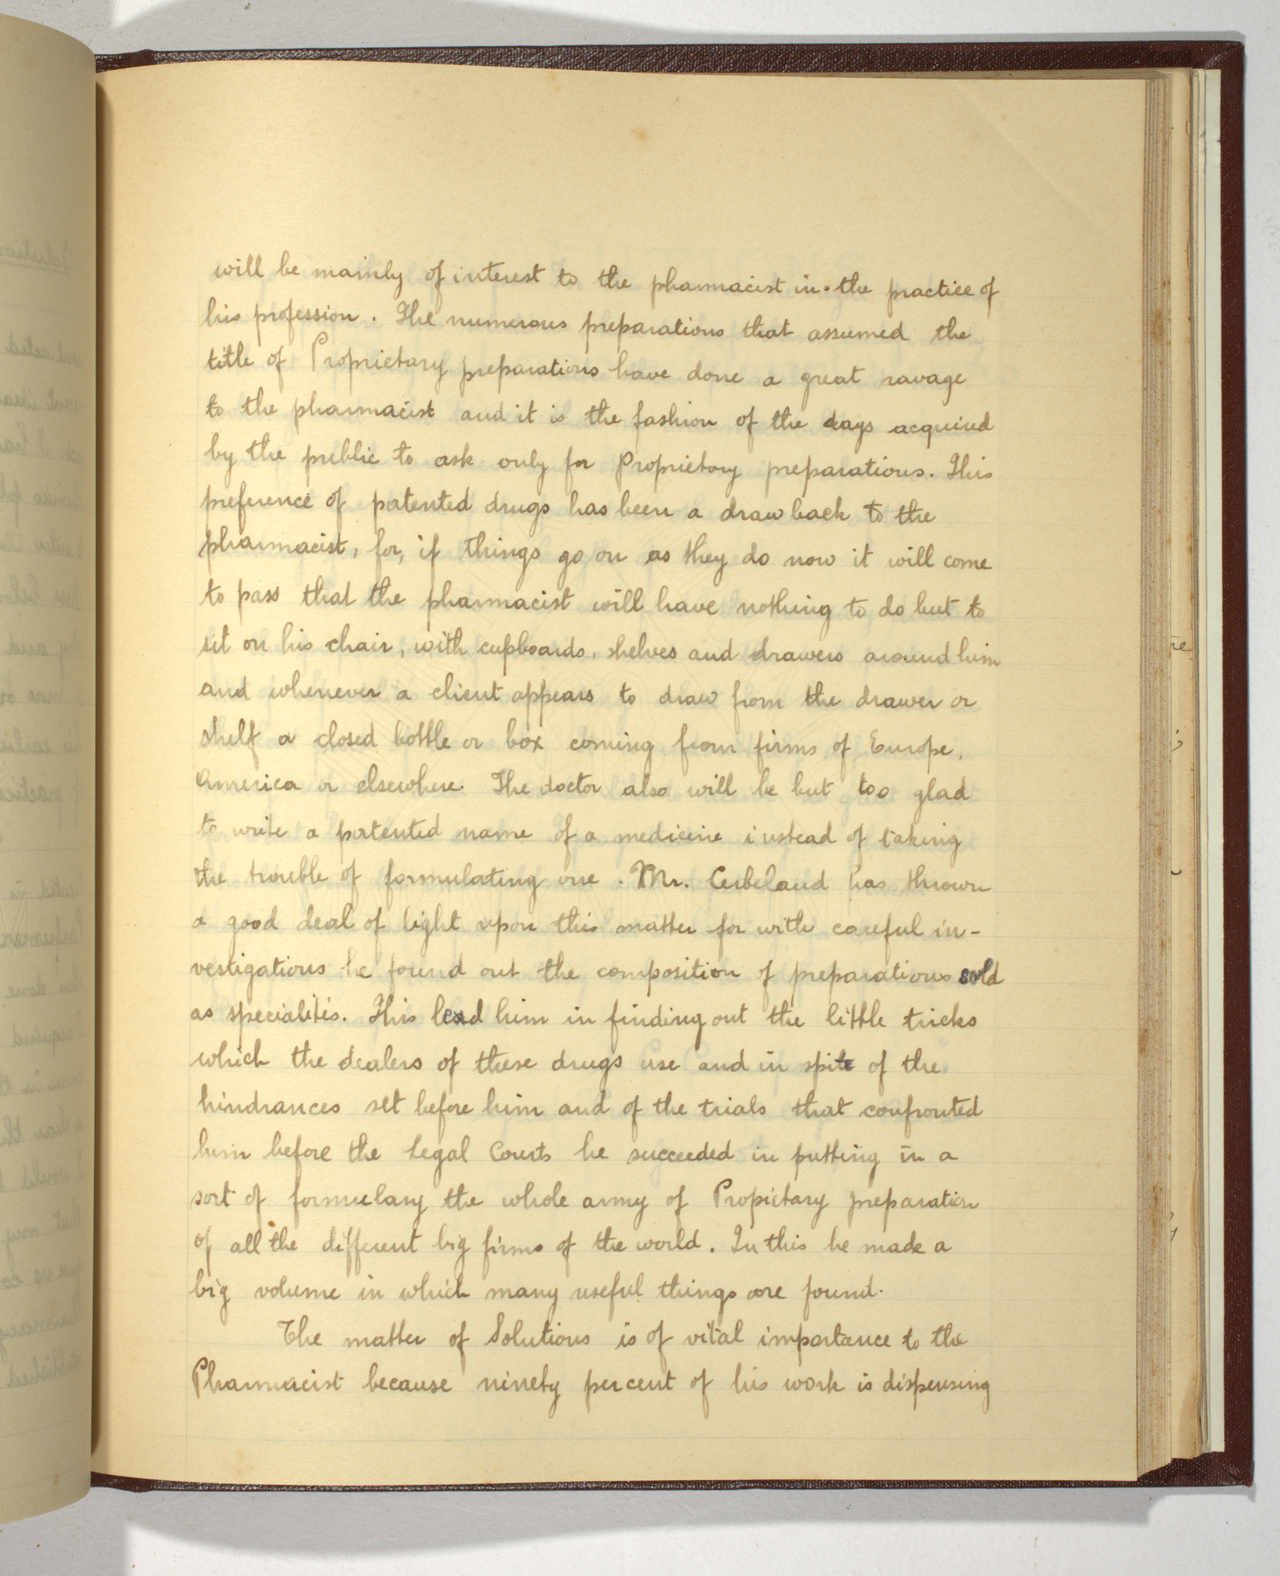 will be mainly of interest to the pharmacist in the practice of
his profession. The numerous preparations that assumed the
title of Proprietary preparations have done a great ravage
to the pharmacist and it is the fashion of the days acquired
by the public to ask only for Proprietory preparations. This
preference of patented drugs has been a drawback to the
pharmacist, for, if things go on as they do now it will come
to pass that the pharmacist will have nothing to do but to
sit on his chair, with cupboards, shelves and drawers around him
and whenever a client appears to draw from the drawer or
shelf a closed bottle or box coming from firms of Europe,
America or elsewhere. The doctor also will be but too glad
to write a patented name of a medicine instead of taking
the trouble of formulating one. Mr. Cerbelaud has thrown
a good deal of light upon this matter for with careful in-
vestigations he found out the composition of preparations sold
as specialités. This lead him in finding out the little tricks
which the dealers of these drugs use and in spite of the
hindrances set before him and of the trials that confronted
him before the Legal Courts he succeeded in putting in a
sort of formulary the whole army of Propietary preparation
of all the different big firms of the world. In this he made a
big volume in which many useful things are found.
The matter of Solutions is of vital importance to the
Pharmacist because ninety per cent of his work is dispensing